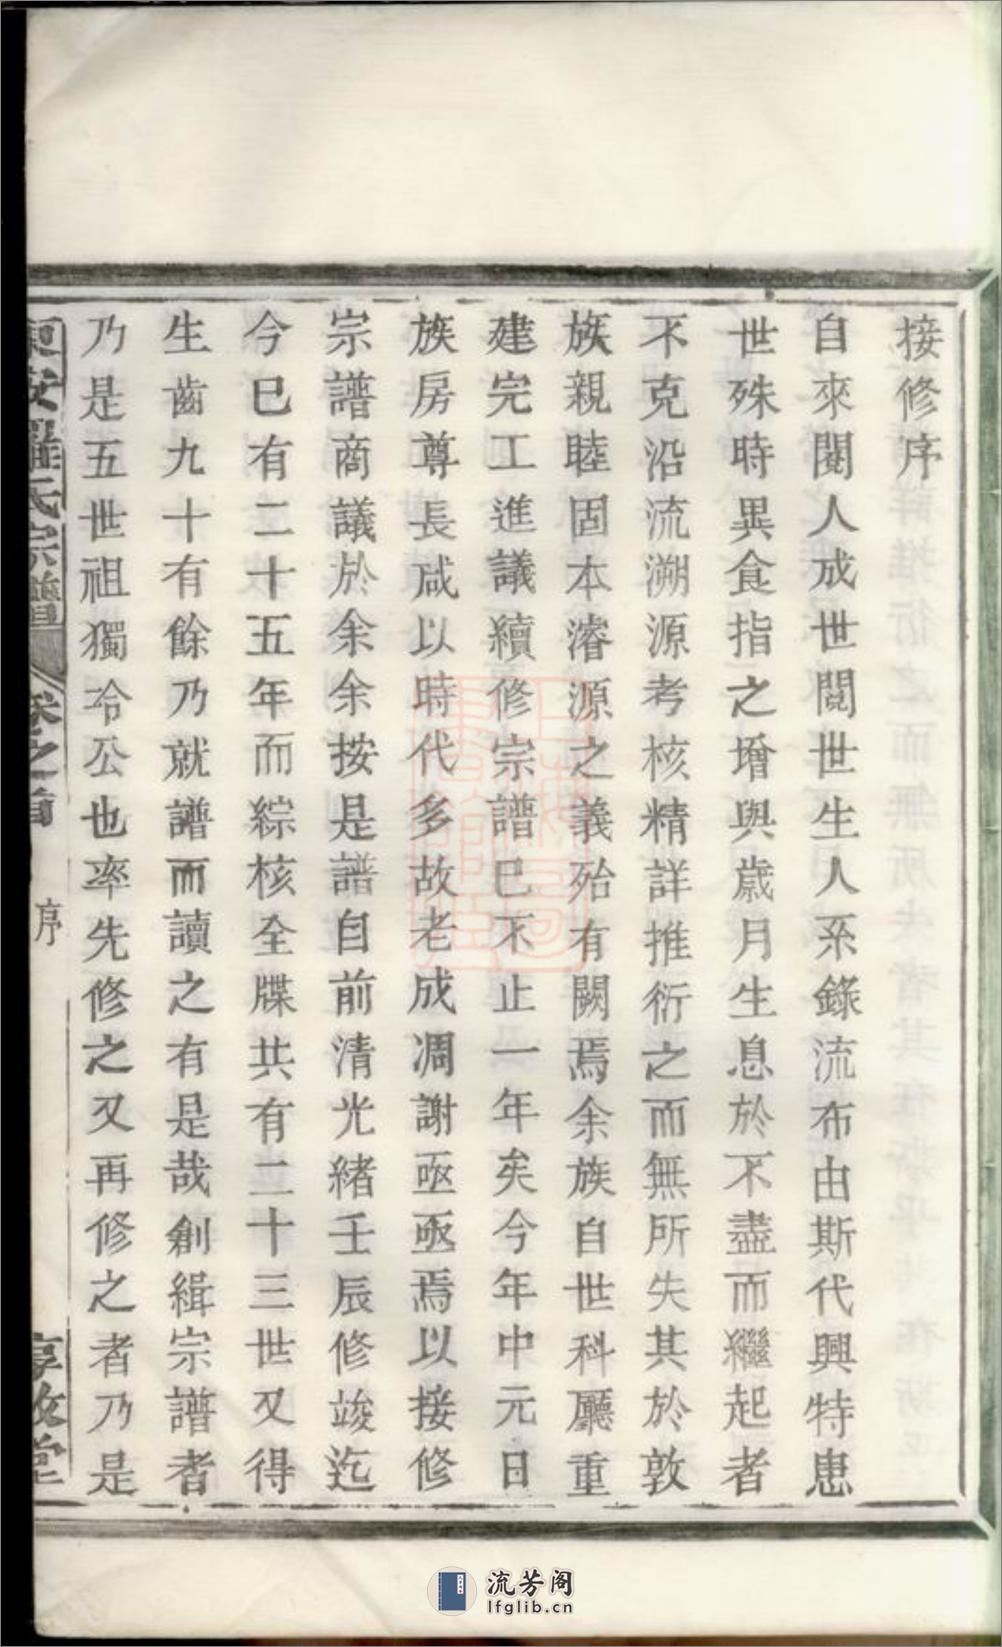 接修序
自來閱人成世閱世生人系錄流布由斯代興特患
世殊時異食指之增與歲月生息於不盡而繼起者
不克沿流溯源考核精詳推衍之而無所失其於敦
族親睦固本濬源之義殆有闕焉余族自世科廳重
建完工進議續修宗譜已不止一年矣今年中元日
族房尊長咸以時代多故老成凋謝亟亟焉以接修
宗譜商議於余余按是譜自前清光緒壬辰修竣迄
今已有二十五年而綜核全牒共有二十三世又得
生齒九十有餘乃就譜而讀之有是哉創緝宗譜者
乃是五世祖獨冷公也率先修之又再修之者乃是
東安羅氏宗譜 卷之首 序 享敘堂
流芳阁
lfglib.cn